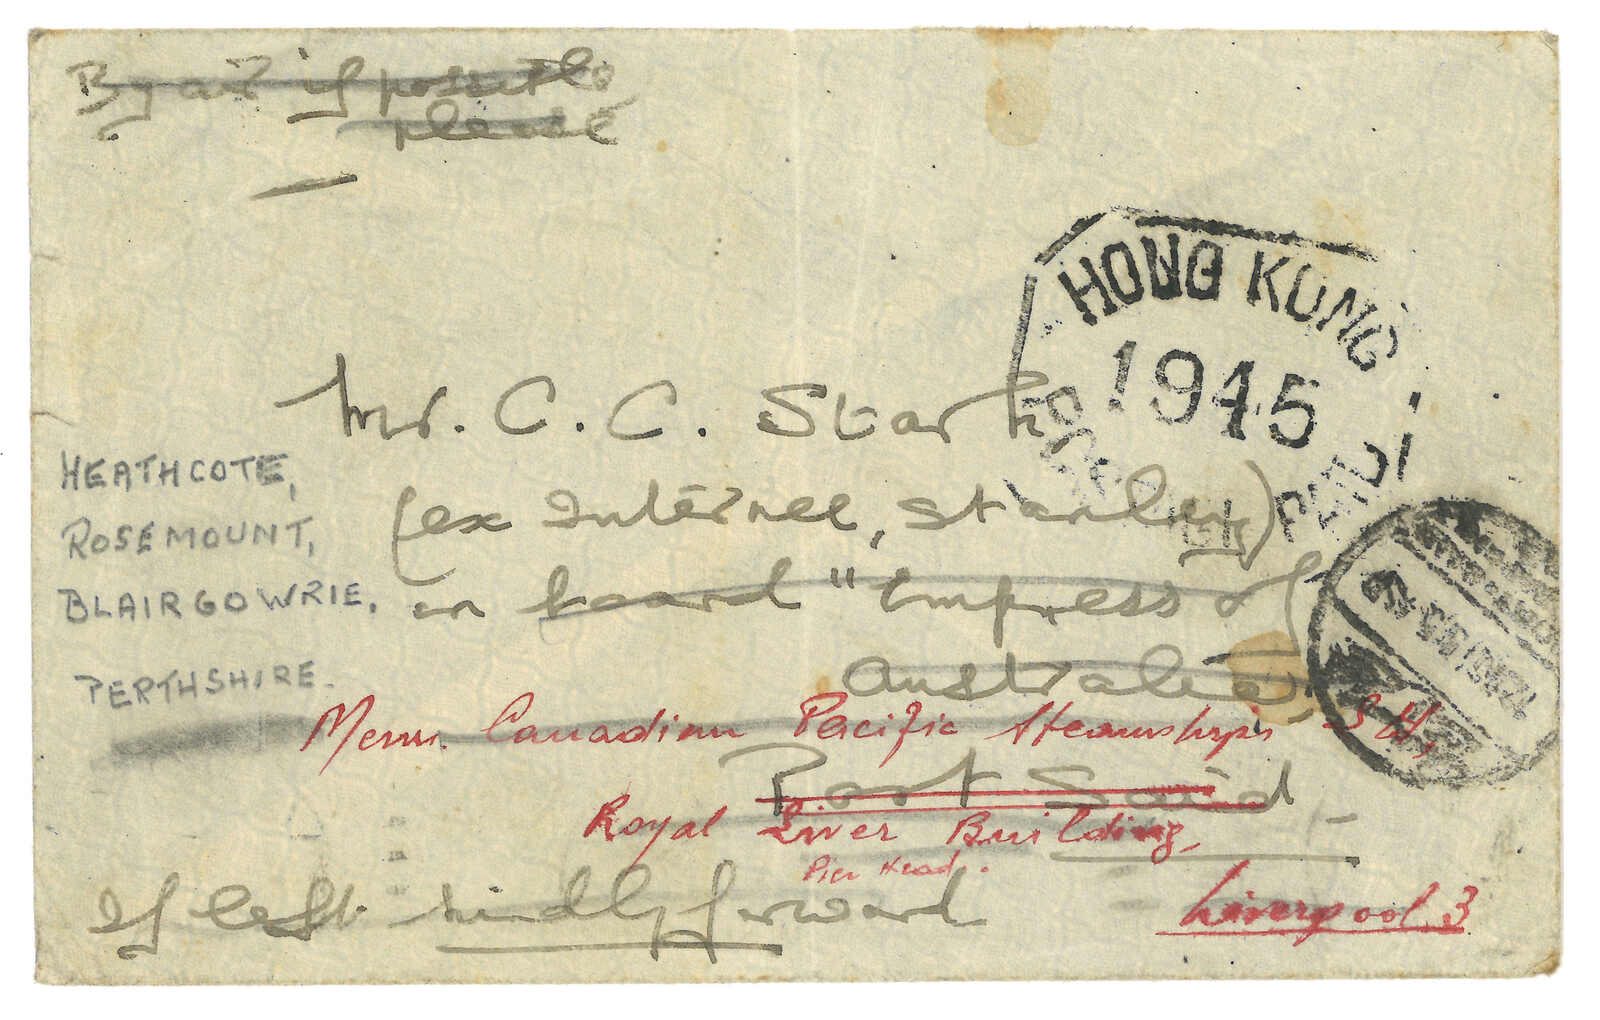 By air if possible
please
HONG KONG
1945
POSTAGE PAID
Mr. C. C. Stark
(ex Internee, Stanley)
on board "Empress of
Australia"
Port Said
If left kindly forward
HEATHCOTE,
ROSEMOUNT,
BLAIRGOWRIE,
PERTHSHIRE.
Messrs. Canadian Pacific Steamships
Royal Liver Building,
Pier Head.
Liverpool 3